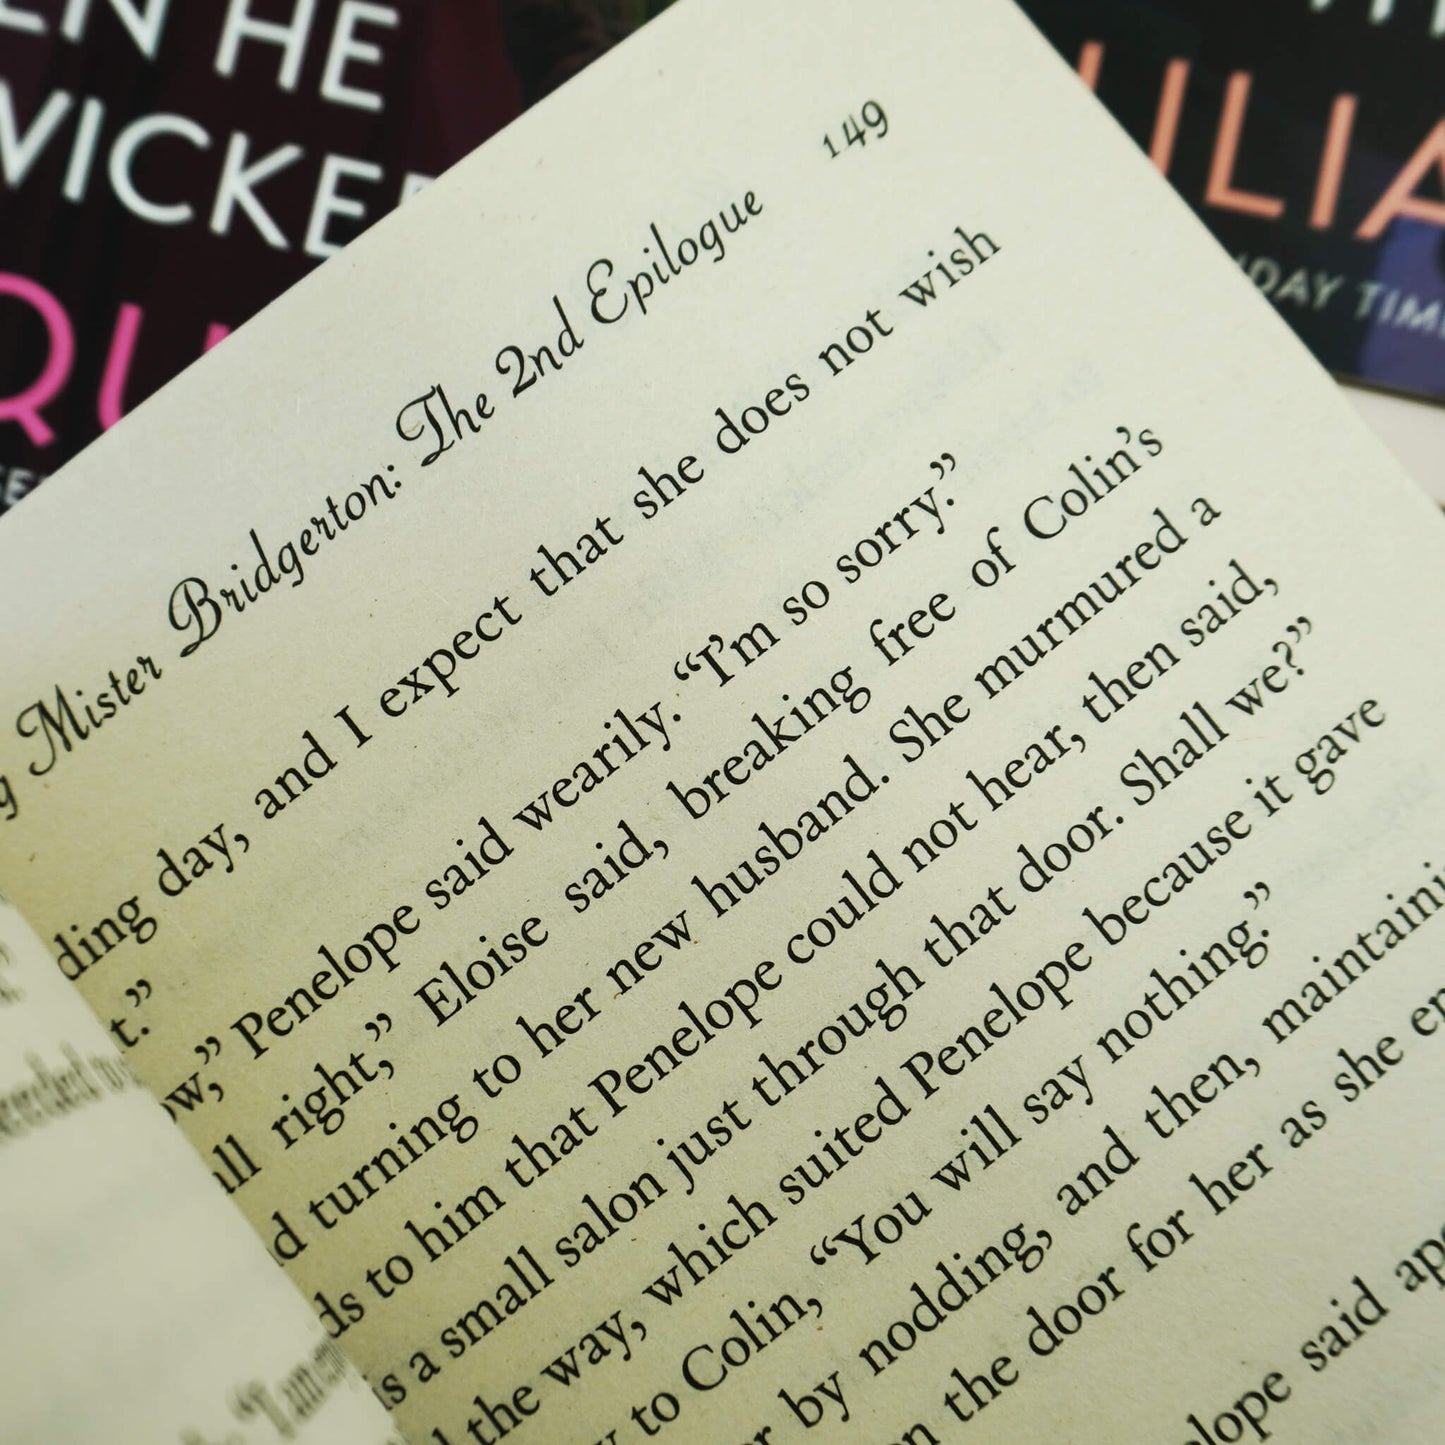 EN HE
WICKE
QU
ULIA
DAY TIM
149
g Mister Bridgerton: The 2nd Epilogue
ding day, and I expect that she does not wish
t.”
ow,” Penelope said wearily. “I’m so sorry.”
all right,” Eloise said, breaking free of Colin’s
d turning to her new husband. She murmured a
ds to him that Penelope could not hear, then said,
is a small salon just through that door. Shall we?”
d the way, which suited Penelope because it gave
y to Colin, “You will say nothing.”
r by nodding, and then, maintaini
n the door for her as she en
elope said apo